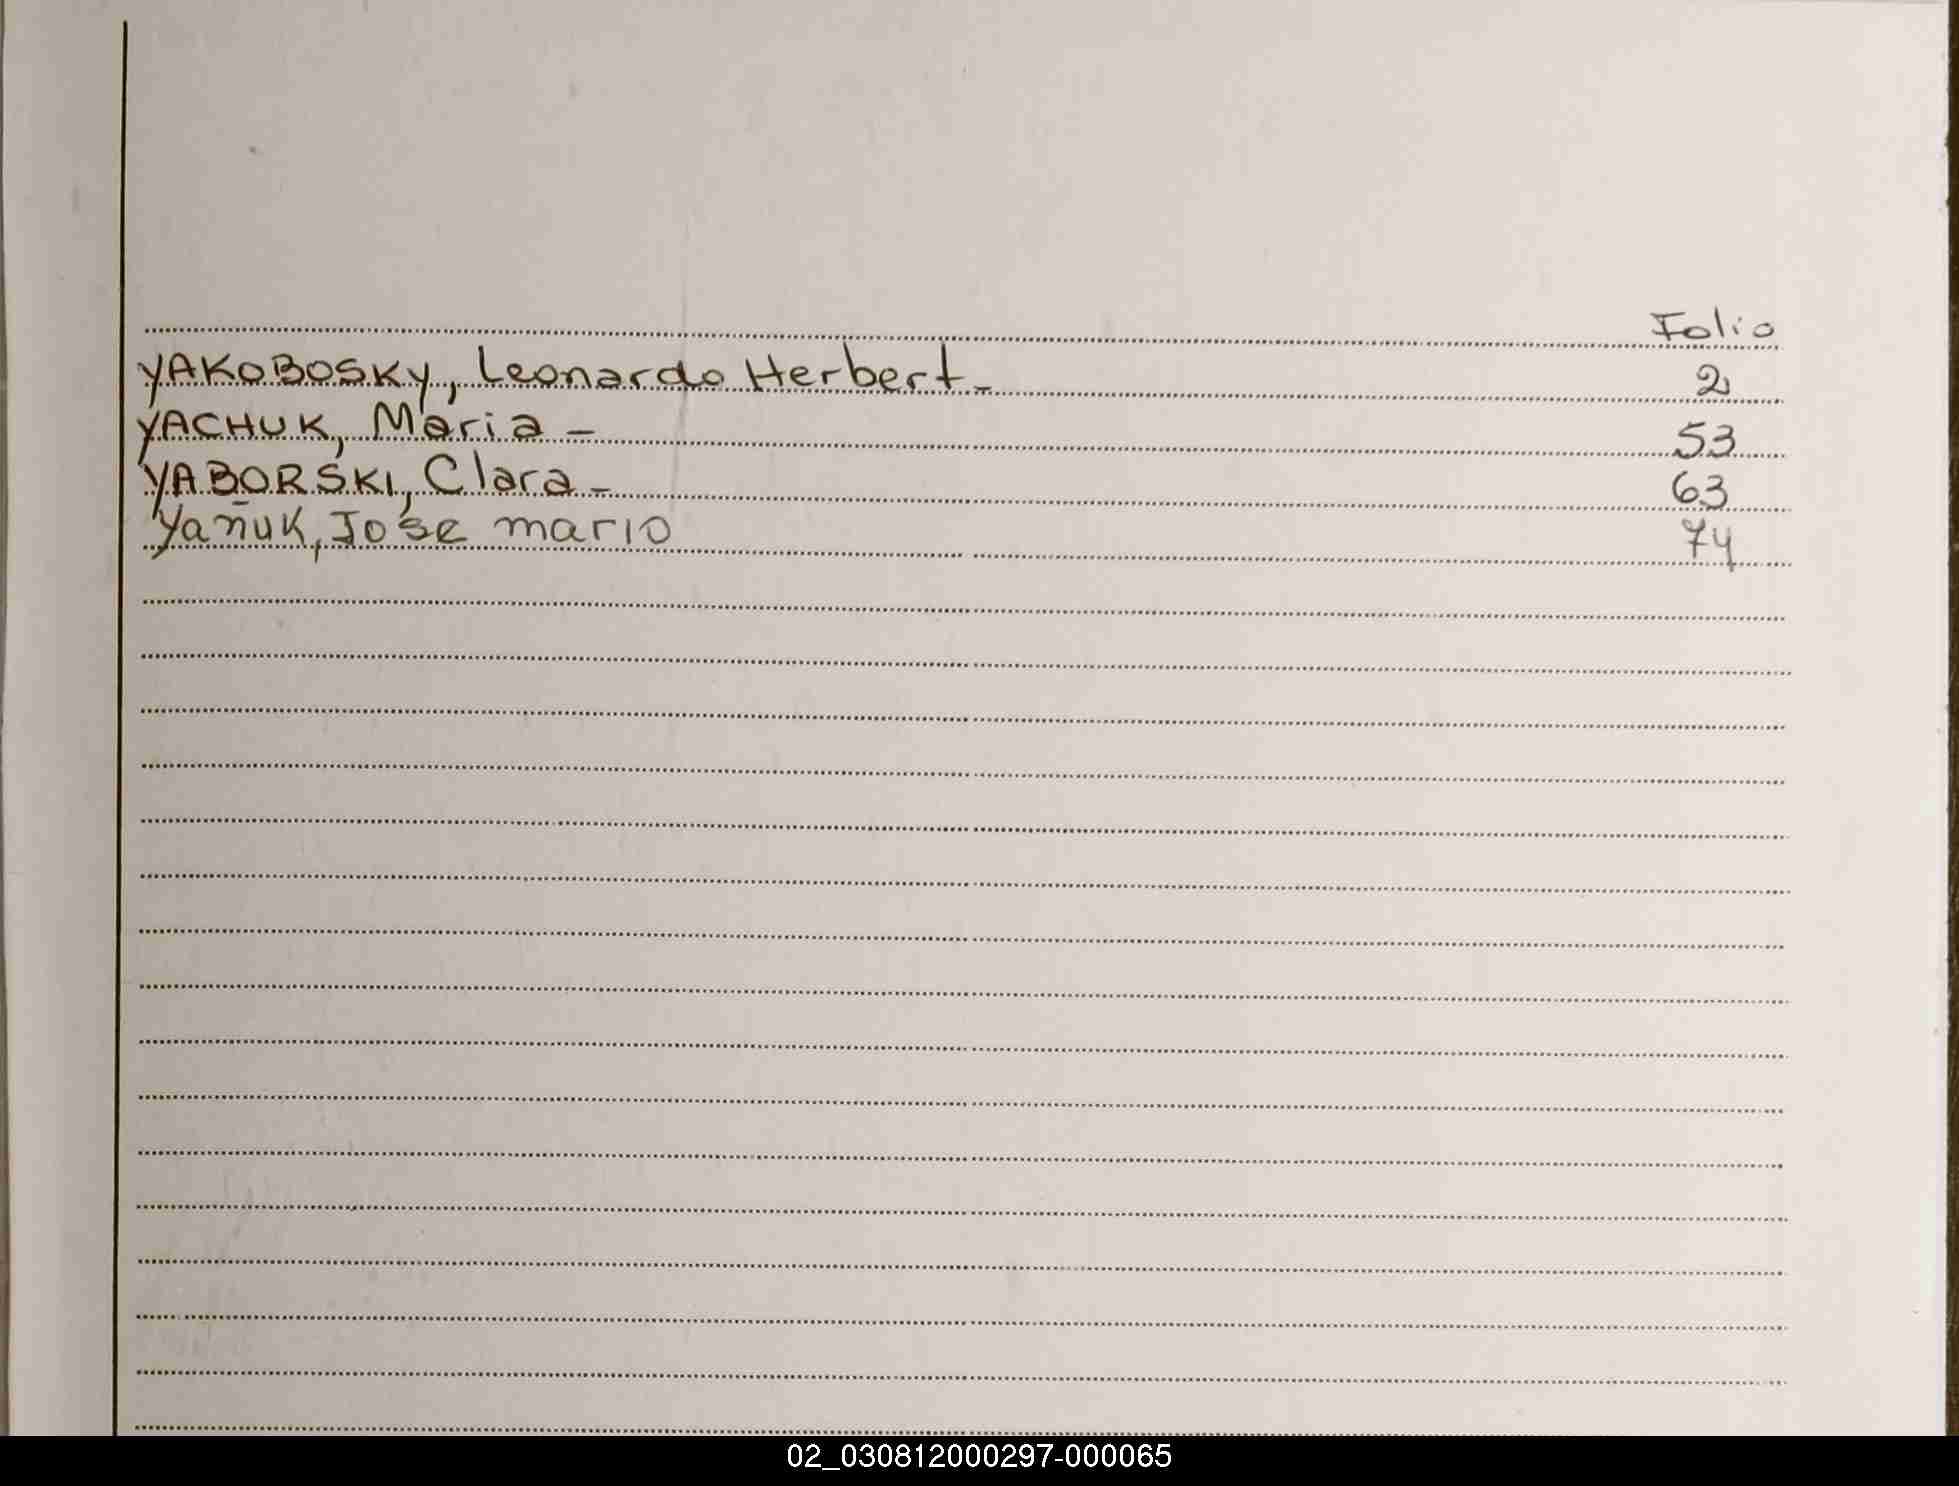 Folio
YAKOBOSKY, Leonardo Herbert- 2
YACHUK, Maria - 53
YABORSKI, Clara - 63
Yañuk, Jose mario 74
02_030812000297-000065